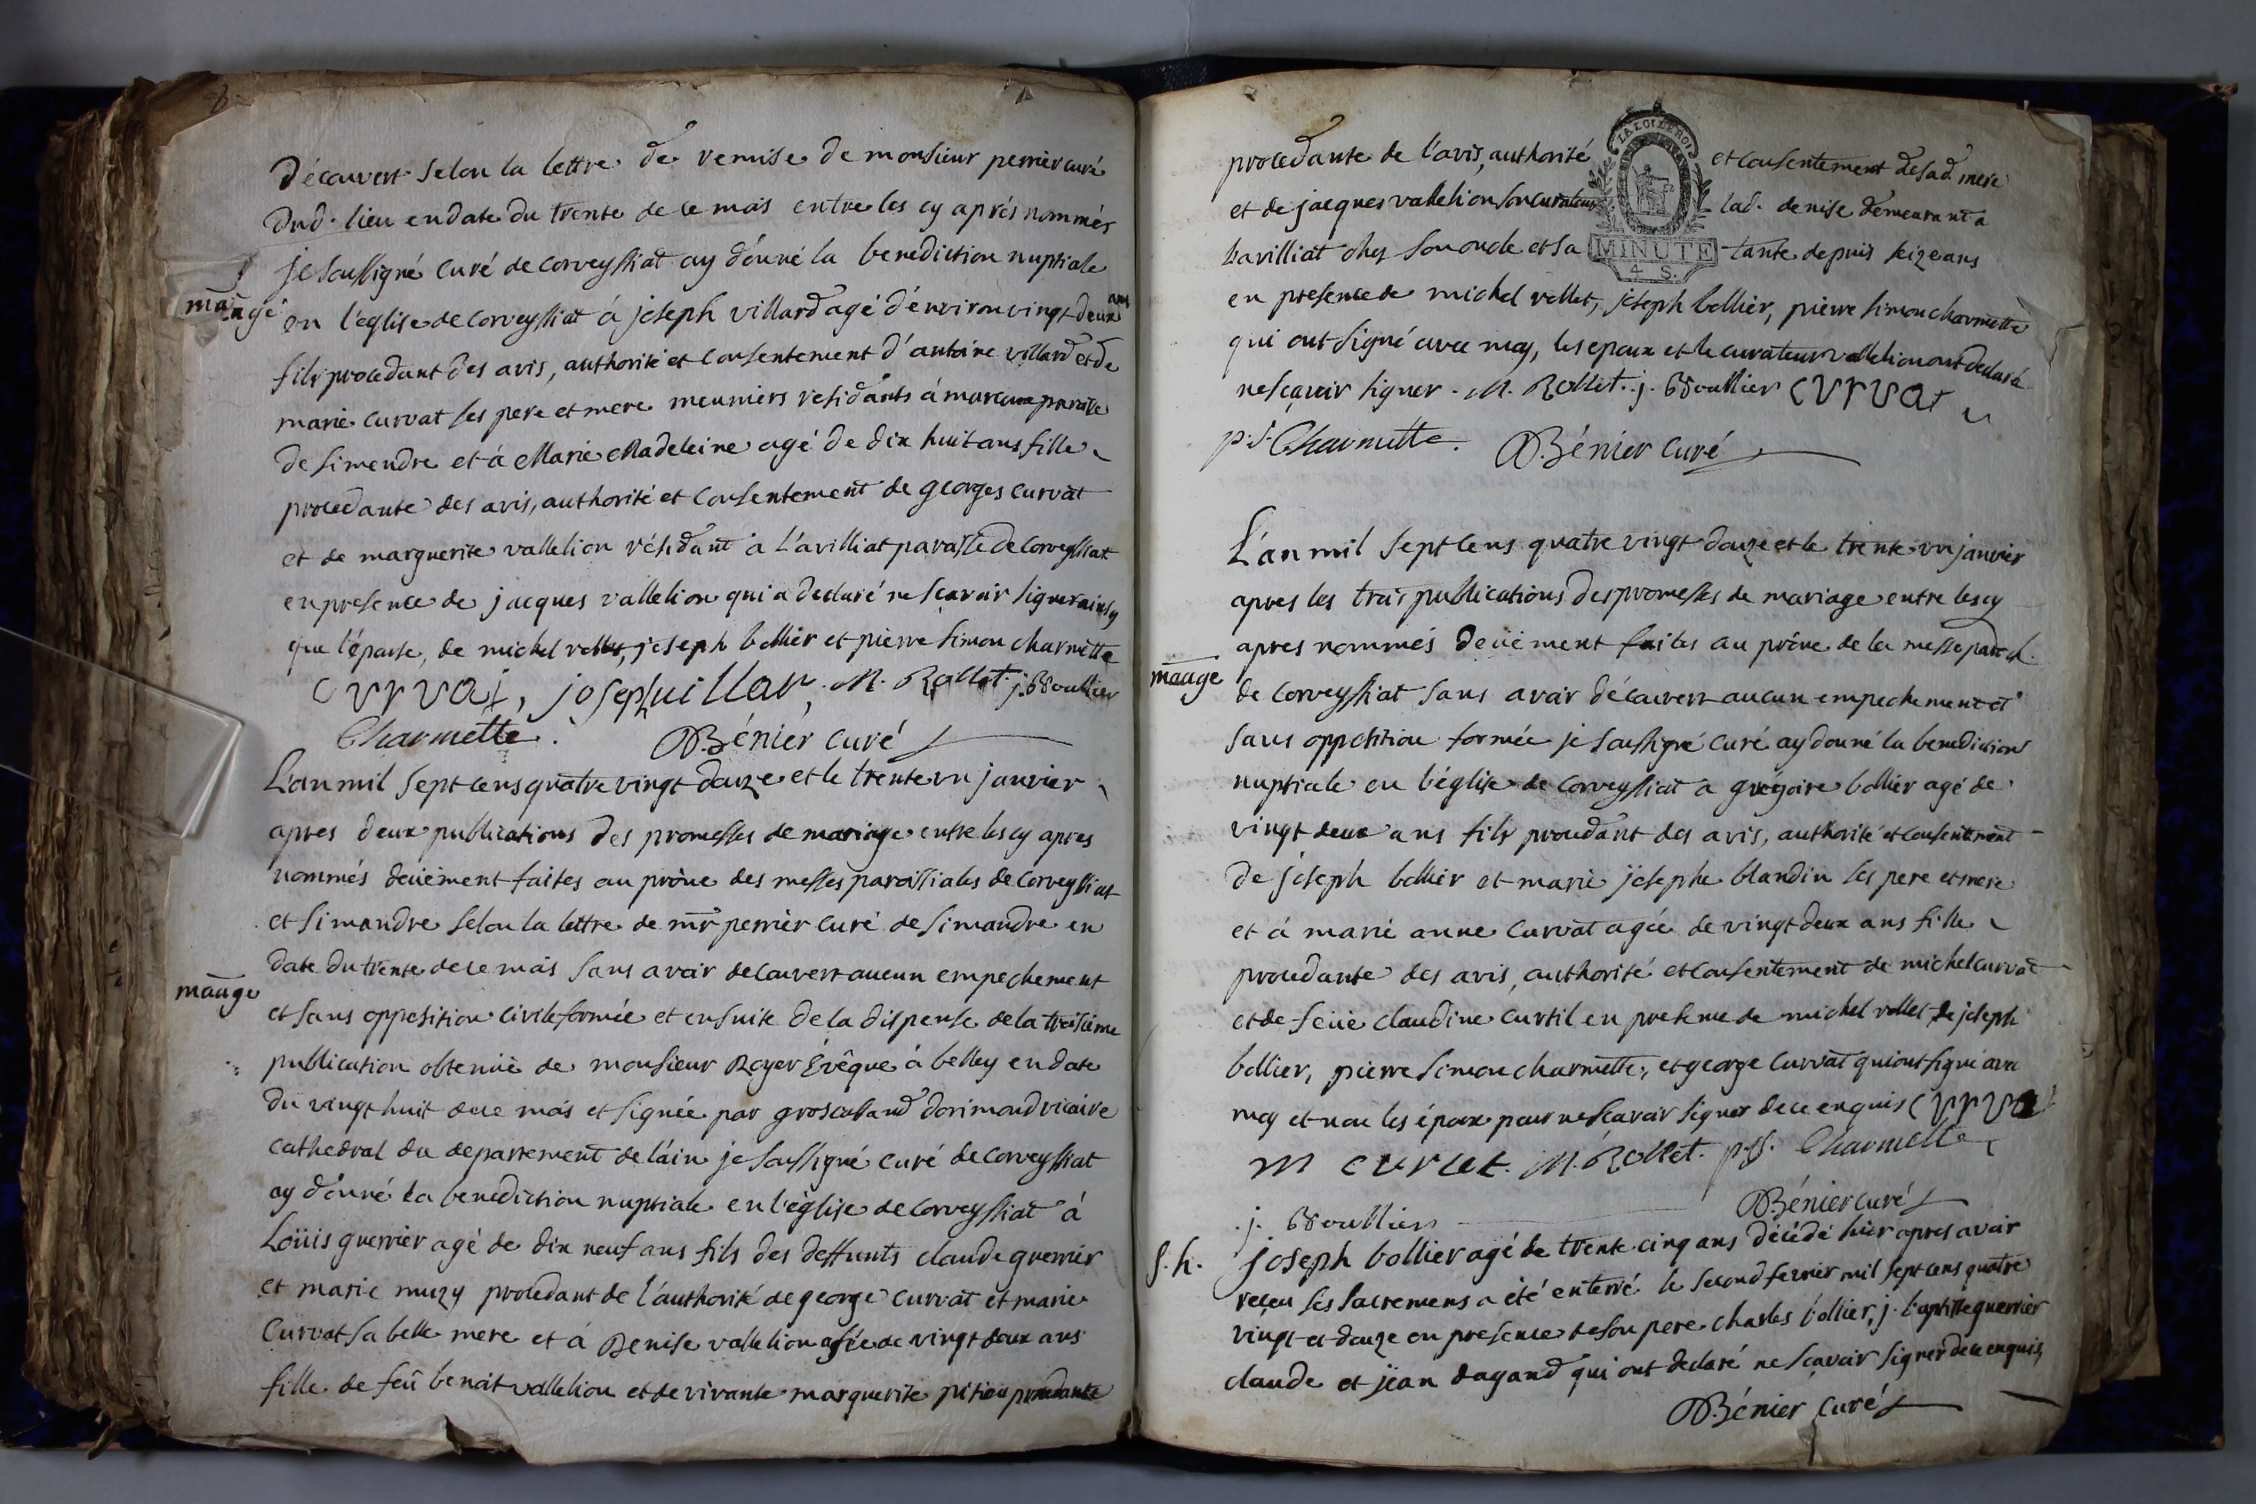 découvert selon la lettre de remise de monsieur perrier curé
dud. lieu en date du trente de ce mois entre les cy aprés nommés
je soussigné curé de corveyssiat ay donné la benediction nuptiale
mariage
en l'eglise de corveyssiat à joseph villard agé d'environ vingt deux ans
fils procedant des avis, authorité et consentement d'antoine villard et de
marie curvat ses pere et mere meuniers residants à marcoux paroisse
de simendre et à Marie Madeleine agé de dix huit ans fille
procedante des avis, authorité et consentement de georges curvat
et de marguerite vallelion résidant a L'avilliat paroisse de Corveyssiat
en presence de jacques vallelion qui a declaré ne sçavoir signer ainsy
que l'épouse, de michel rollet, joseph bollier et pierre simon charmette
curvat, joseph uillar, M. Rollet. j. Boullier
Charmette. Bénier curé
L'an mil sept cens quatre vingt douze et le trente un janvier
apres deux publications des promesses de mariage entre les cy apres
nommés deüement faites au prône des messes paroissiales de Corveyssiat
et simandre selon la lettre de mr perrier curé de simandre en
date du trente de ce mois sans avoir decouvert aucun empechement
mariage
et sans opposition civile formée et ensuite de la dispense de la troisième
publication obtenuë de monsieur Royer Évêque à belley en date
du vingt huit de ce mois et signée par groscassand dorimond vicaire
cathedral du departement de l'ain je soussigné curé de Corveyssiat
ay donné la benediction nuptiale en l'église de Corveyssiat à
Loüis guerrier agé de dix neuf ans fils des deffunts claude guerrier
et marie muzy procedant de l'authorité de george curvat et marie
Curvat sa belle mere et à Denise vallelion agée de vingt deux ans
fille de feû benoit vallelion et de vivante marguerite pitiou procedante
procedante de l'avis, authorité et consentement de sad. mere
LA LOI LE ROI
et de jacques vallelion son curateur lad. denise demeurant a
Lavilliat chez son oncle et sa tante depuis seize ans
MINUTE
4 S.
en presence de michel rollet, joseph bollier, pierre simon charmette
qui ont signé avec moy, les epoux et le curateur vallelion ont declaré
ne sçavoir signer. M. Rollet. j. Boullier curvat
p. s. Charmette. Bénier curé
L'an mil sept cens quatre vingt douze et le trente un janvier
apres les trois publications des promesses de mariage entre les cy
apres nommés deüement faites au prône de la messe paroch.
mariage
de Corveyssiat sans avoir découvert aucun empechement et
sans oppositiou formée je soussigné curé ay donné la benediction
nuptiale en l'église de Corveyssiat a grégoire bollier agé de
vingt deux ans fils procedant des avis, authorité et consentement
de joseph bollier et marie josephe blandin ses pere et mere
et à marie anne curvat agée de vingt deux ans fille
procedante des avis, authorité et consentement de michel curvat
et de feüe claudine curtil en presence de michel rollet de joseph
bollier, pierre simon charmette, et george curvat qui ont signé avec
moy et non les époux pour ne sçavoir signer de ce enquis curvat
m curuet. M. Rollet. p. s. Charmette
j. Boullier Bénier curé
S. h.
joseph bollier agé de trente cinq ans décédé hier apres avoir
reçeu ses sacremens a été enterré le second fevrier mil sept cens quatre
vingt et douze en presence de son pere charles bollier, j. baptiste guerrier
claude et jean dagand qui ont declaré ne sçavoir signer de ce enquis
Bénier curé